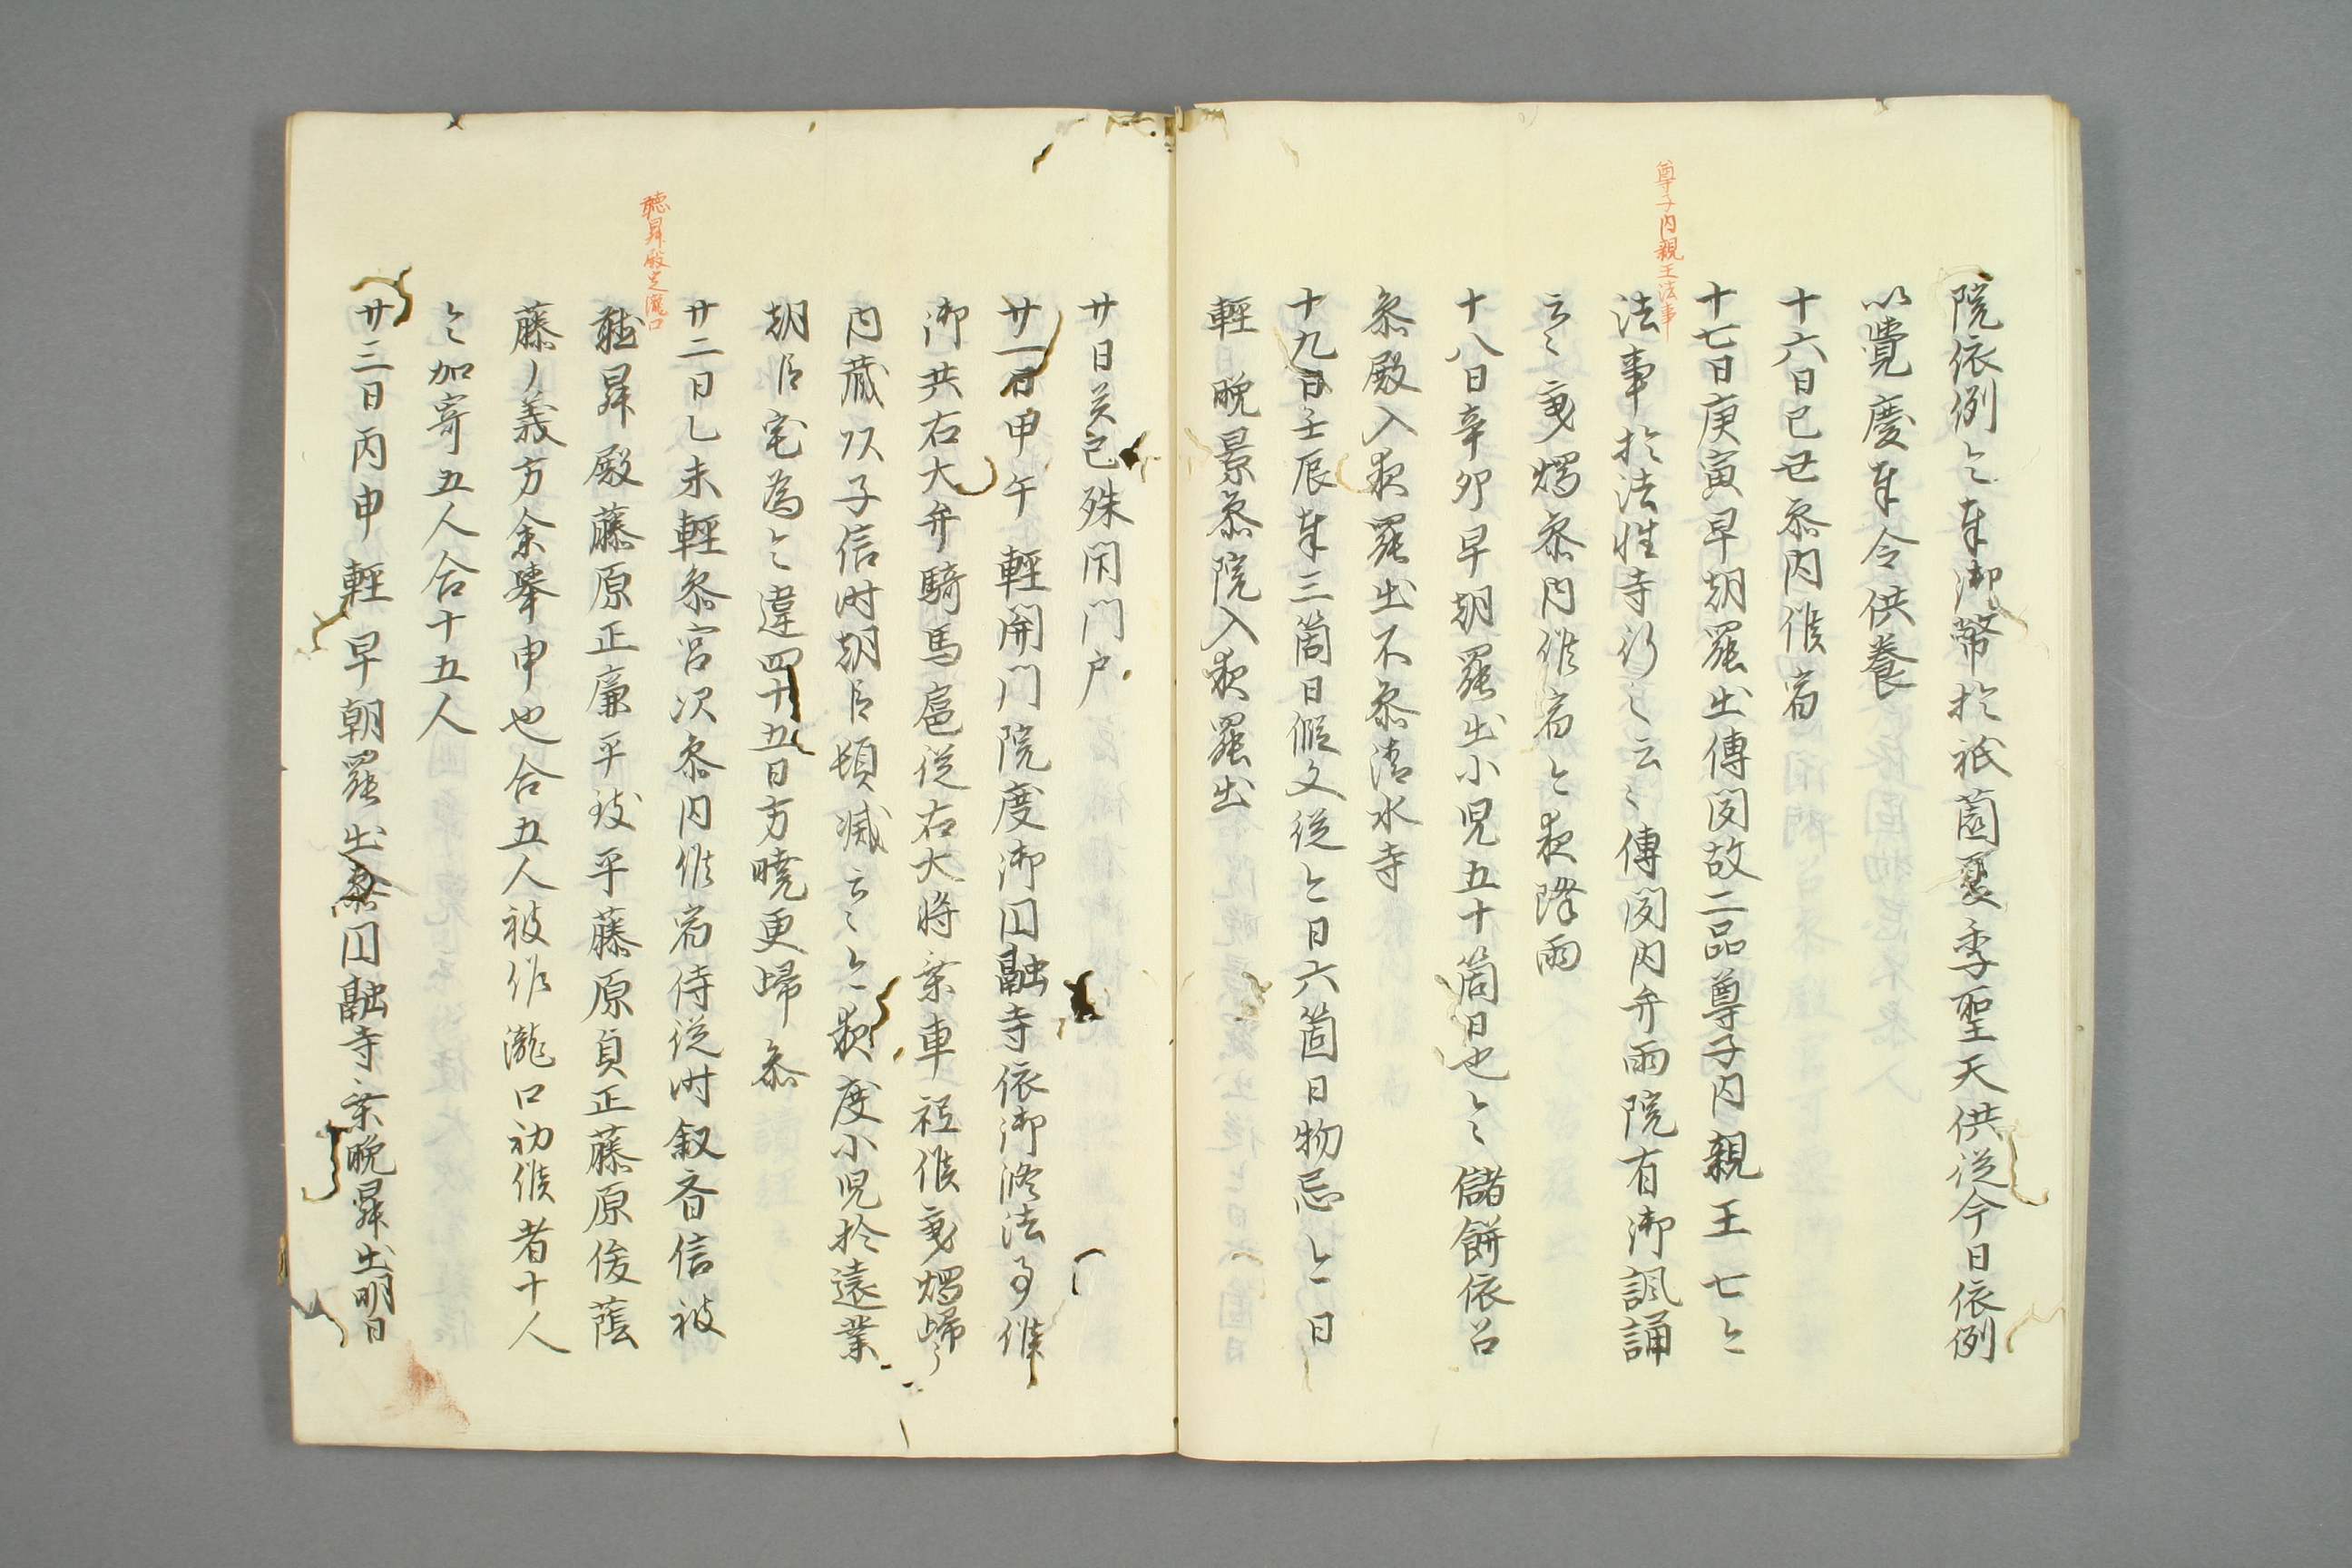 院依例〻奉御幣於祇薗夏季聖天供従今日依例
以覚慶奉令供養
十六日己丑参内候宿
尊子内親王法事
十七日庚寅早朝罷出傳聞故二品尊子内親王七〻
法事於法性寺行之云〻傳聞内弁両院有御諷誦
云〻乗燭参内候宿〻夜降雨
十八日辛卯早朝罷出小児五十箇日也〻〻儲餅依召
参殿入夜罷出不参清水寺
十九日壬辰奉三箇日假文従〻日六箇日物忌〻日
軽 晩景参院入夜罷出
廿日癸巳殊閇門戸
廿一日甲午 軽開門院度御円融寺依御修法事候
御共右大弁騎馬扈従右大将乗車祗候乗燭歸了
内蔵以子信時朝臣頓滅云〻〻夜度小児於遠業
朝臣宅為〻違四十五日方暁更歸参
聴昇殿定瀧口
廿二日乙未軽参宮次参内候宿侍従時叙斉信被
聴昇殿藤原正廉平致平藤原貞正藤原俊蔭
藤ノ義方余挙申也合五人被作瀧口初候者十人
〻加寄五人合十五人
廿三日丙申 軽 早朝罷出参円融寺業晩昇出明日